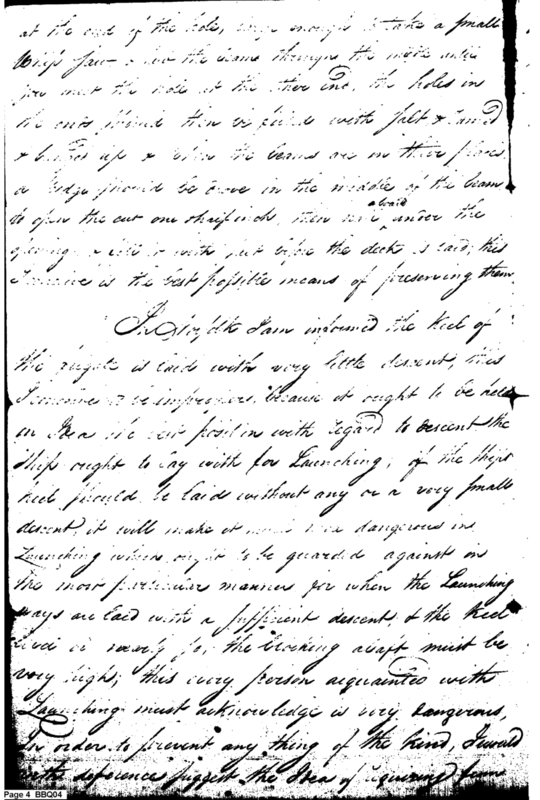 at the end of the hole, large enough to take a small
Whip saw & saw the beams through the middle until
you meet the hole at the other end, the holes in
the ends should then be filled with salt &
& up & when the beams are in their places
a wedge should be drove in the middle of the beam
to open the cut one & half inch, then a board under the
opening & fill it with salt before the deck is laid; this
I conceive is the best possible means of preserving them.
In Norfolk I am informed the Keel of
the frigate is laid with very little descent, this
I conceive to be improper, because it ought to be held
in Idea the best position with regard to descent the
Ship ought to lay with for Launching; if the ships
keel should be laid without any or a very small
descent, it will make it much more dangerous in
Launching which ought to be guarded against in
the most particular manner for when the Launching
ways are laid with a sufficient descent & the Keel
level or nearly so, the blocking abaft must be
very high; this every person acquainted with
Launching must acknowledge is very dangerous,
In order to prevent any thing of the kind, I would
with deference suggest the Idea of from
Page 4 BBQ04